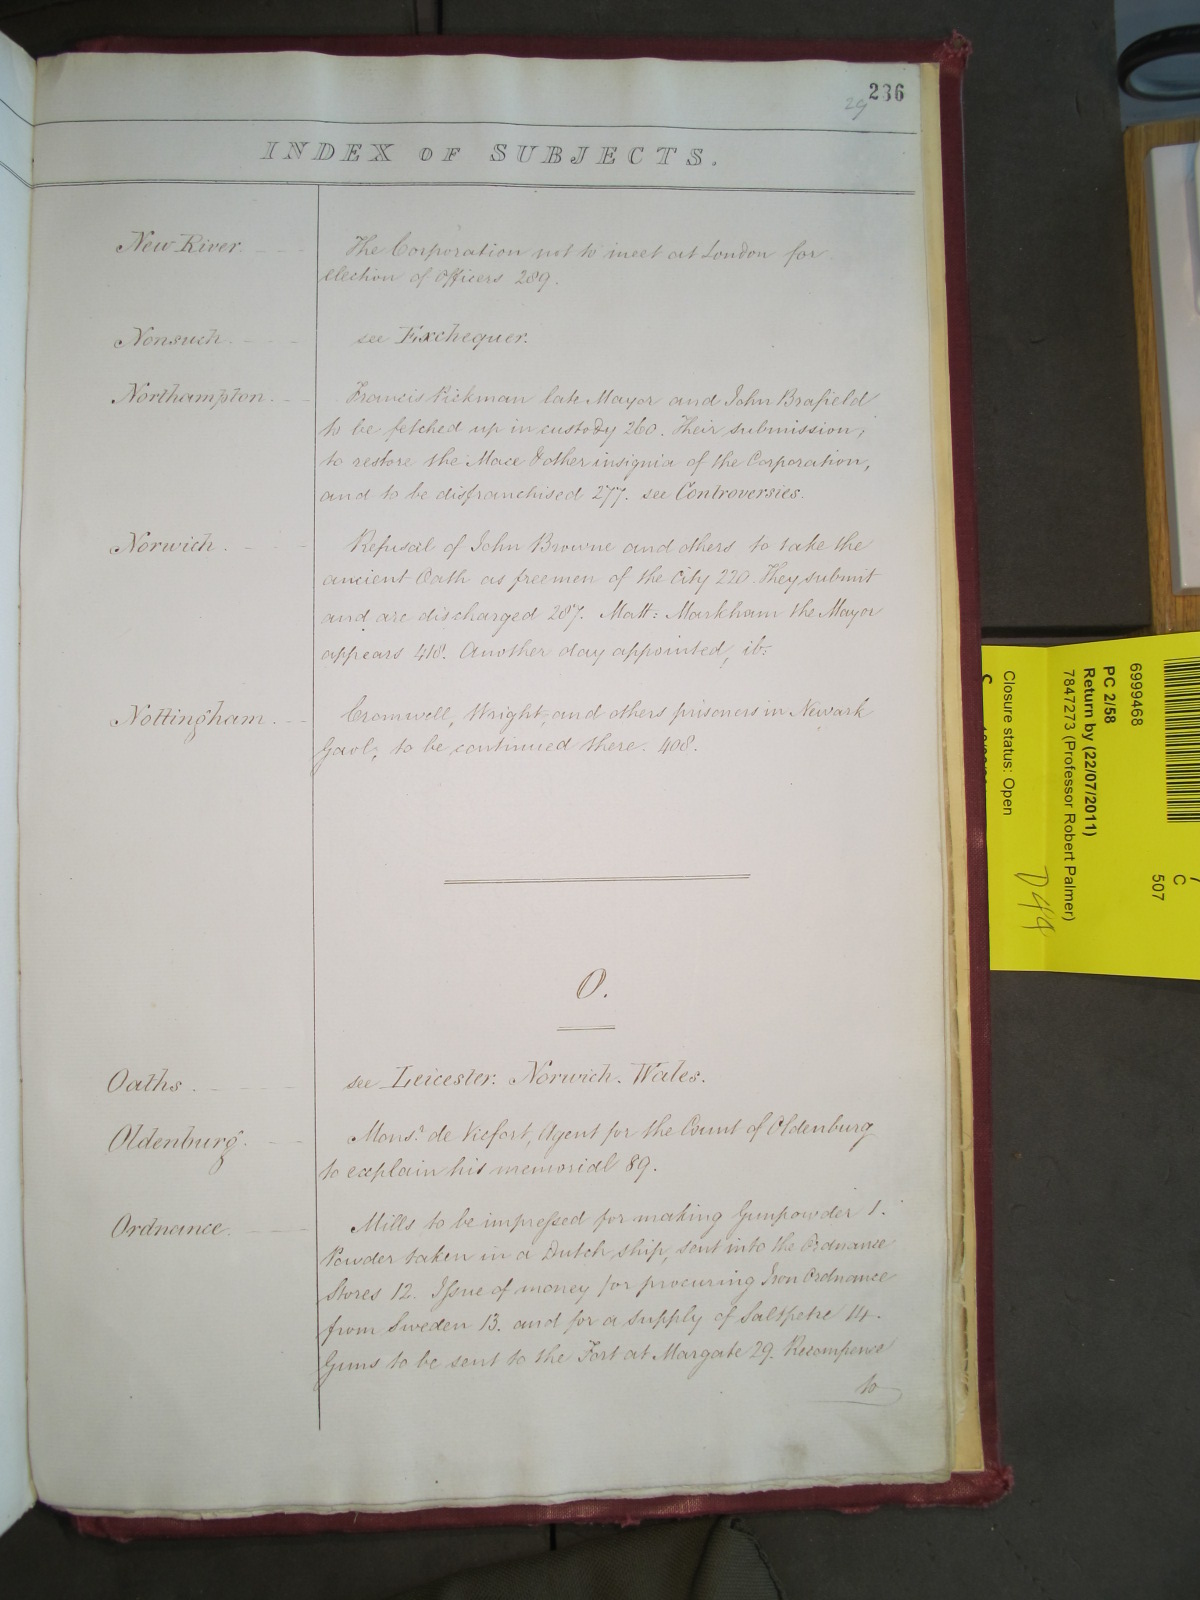 236
29
INDEX OF SUBJECTS.
New River. The Corporation not to meet at London for
election of Officers 289.
Nonsuch. see Exchequer.
Northampton. Francis Pickman late Mayor and John Brafield
to be fetched up in custody 260. Their submission;
to restore the Mace & other insignia of the Corporation,
and to be disfranchised 277. see Controversies.
Norwich. Refusal of John Browne and others to take the
ancient Oath as freemen of the City 220. They submit
and are discharged 287. Matt: Markham the Mayor
appears 418. Another day appointed, ib:
Nottingham. Cromwell, Wright, and others prisoners in Newark
Gaol, to be continued there. 408.
O.
Oaths see Leicester. Norwich. Wales.
Oldenburg. Monsr. de Vicfort, Agent for the Count of Oldenburg
to explain his memorial 89.
Ordnance. Mills to be impressed for making Gunpowder 1.
Powder taken in a Dutch ship, sent into the Ordnance
Stores 12. Issue of money for procuring Iron Ordnance
from Sweden 13. and for a supply of Saltpetre 14.
Guns to be sent to the Fort at Margate 29. Recompence
to
6999468
PC 2/58
Return by (22/07/2011)
7847273 (Professor Robert Palmer)
Closure status: Open
C
507
D49